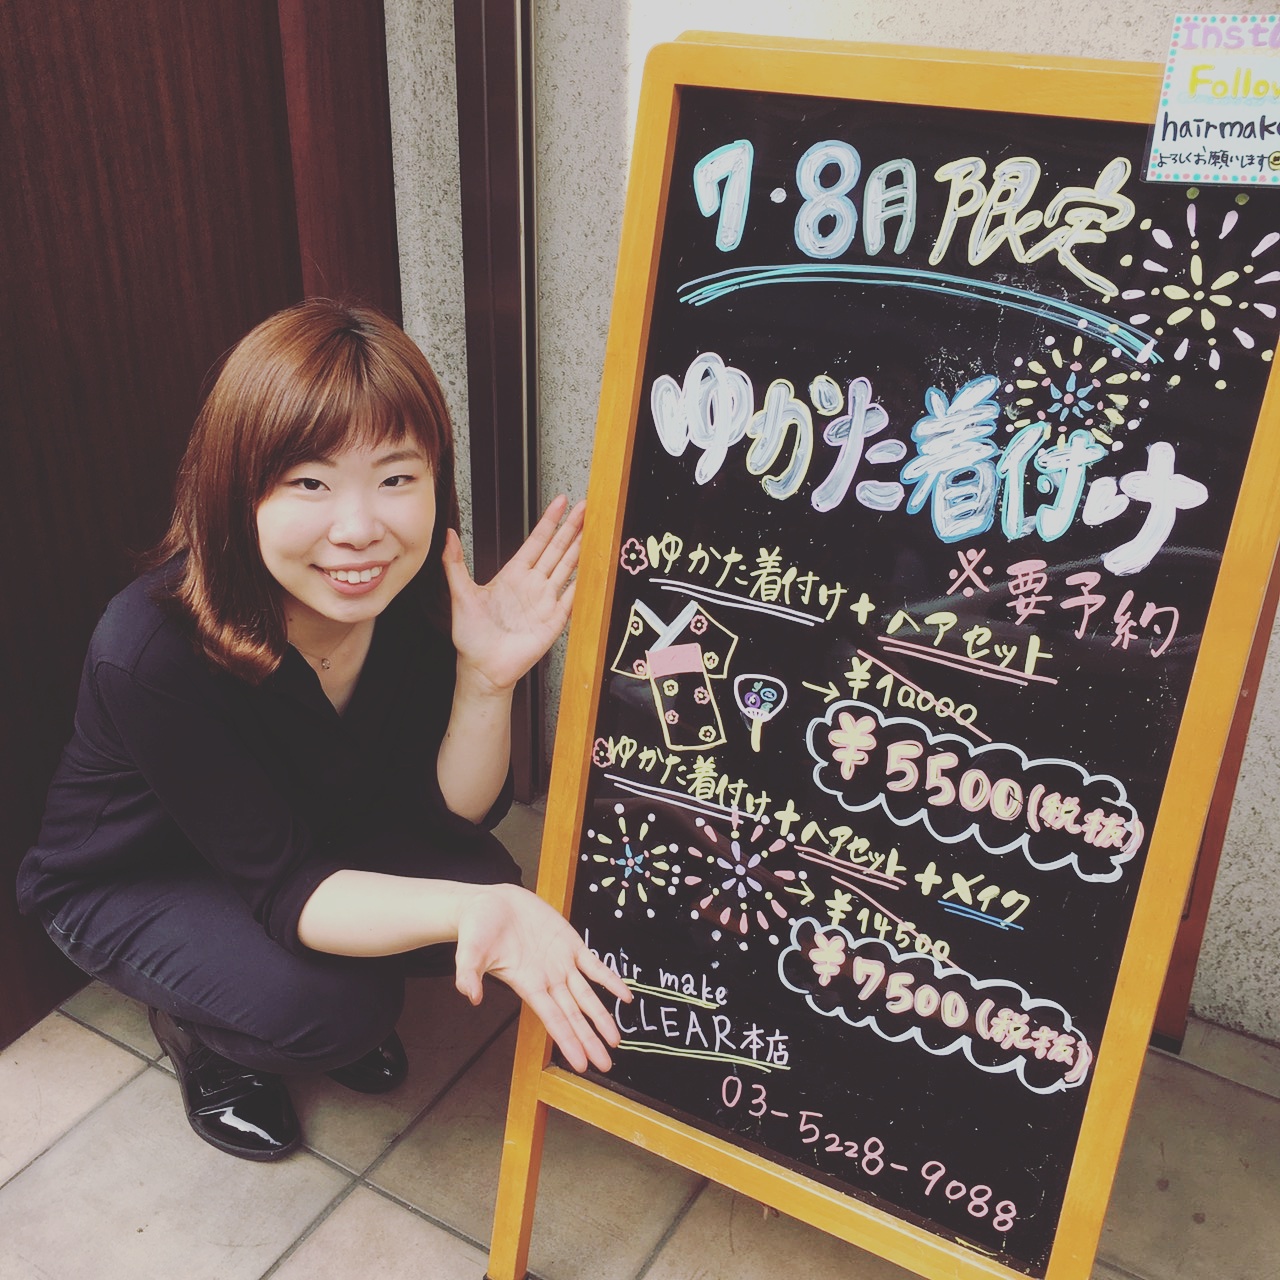 Insta
Follow
hairmake
よろしくお願いします
7・8月限定
ゆかた着付け
※要予約
ゆかた着付け+ヘアセット
→¥10000
¥5500(税抜)
ゆかた着付け+ヘアセット+メイク
→¥14500
¥7500(税抜)
hair make
CLEAR本店
03-5228-9088